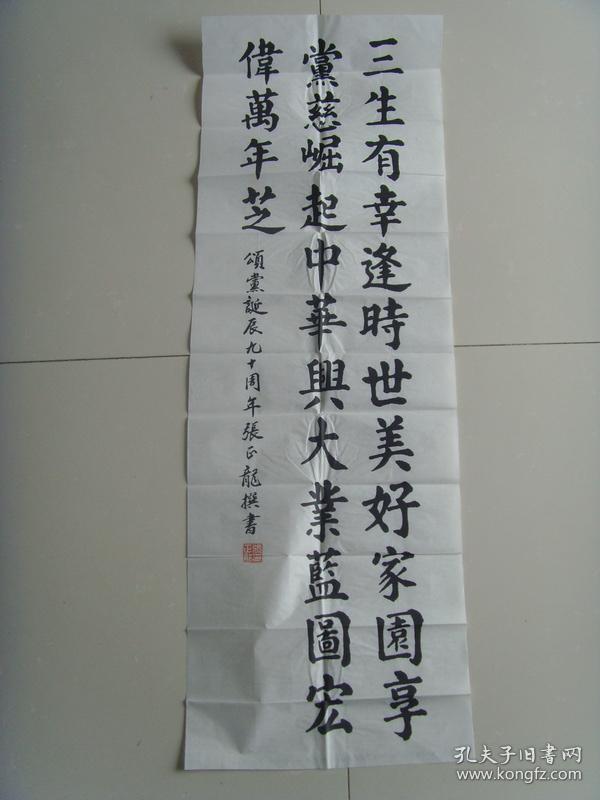 三生有幸逢時世美好家園享
黨慈崛起中華興大業藍圖宏
偉萬年芝
頌黨誕辰九十周年張正龍撰書
孔夫子旧書网
www.kongfz.com